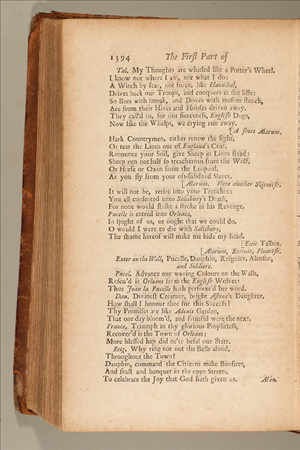 1394 The First Part of
Tal. My Thoughts are whirled like a Potter's Wheel.
I know not where I am, nor what I do:
A Witch by fear, not force, like Hannibal,
Drives back our Troops, and conquers as she lists:
So Bees with smoak, and Doves with noisom stench,
Are from their Hives and Houses driven away.
They call'd us, for our fierceness, English Dogs,
Now like the Whelps, we crying run away.
[A short Alarum.
Hark Countrymen, either renew the fight,
Or tear the Lions out of England's Coat,
Renounce your Soil, give Sheep in Lions stead:
Sheep run not half so treacherous from the Wolf,
Or Horse or Oxen from the Leopard,
As you fly from your oft-subdued Slaves.
[Alarum. Here another Skirmish.
It will not be, retire into your Trenches:
You all consented unto Salisbury's Death,
For none would strike a stroke in his Revenge.
Pucelle is entred into Orleans,
In spight of us, or ought that we could do.
O would I were to die with Salisbury,
The shame hereof will make me hide my head.
[Exit Talbot.
[Alarum, Retreat, Flourish.
Enter on the Wall, Pucelle, Dauphin, Reignier, Alanson,
and Soldiers.
Pucel. Advance our waving Colours on the Walls,
Rescu'd is Orleans from the English Wolves:
Thus Joan la Pucelle hath perform'd her word.
Dau. Divinest Creature, bright Astræa's Daughter,
How shall I honour thee for this Success!
Thy Promises are like Adonis Garden,
That one day bloom'd, and fruitful were the next.
France, Triumph in thy glorious Prophetess,
Recover'd is the Town of Orleans;
More blessed hap did ne'er befal our State.
Reig. Why ring not out the Bells aloud,
Throughout the Town?
Dauphin, command the Citizens make Bonfires,
And feast and banquet in the open Streets,
To celebrate the Joy that God hath given us.
Alan.